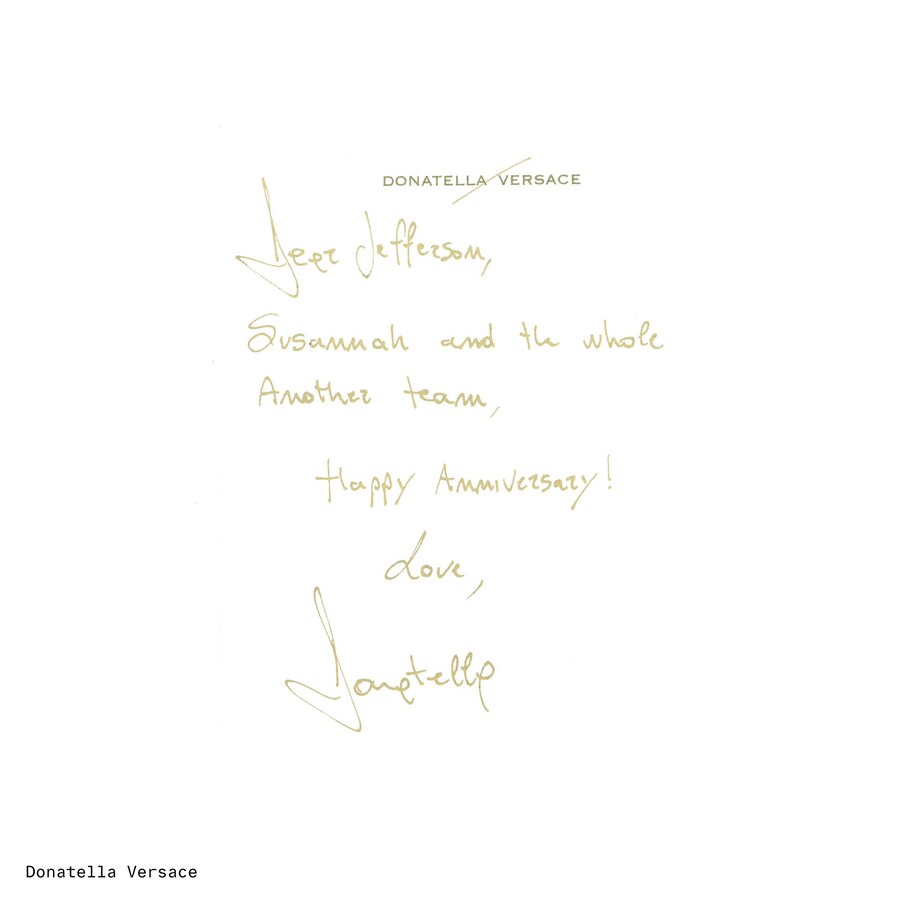 DONATELLA VERSACE
Dear Jefferson,
Susannah and the whole
Another team,
Happy Anniversary!
Love,
Donatella
Donatella Versace